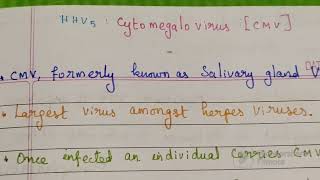 HHV5 : Cytomegalo virus [CMV]
• CMV, formerly known as Salivary gland V
• Largest virus amongst herpes viruses.
• Once infected an individual carries CMV